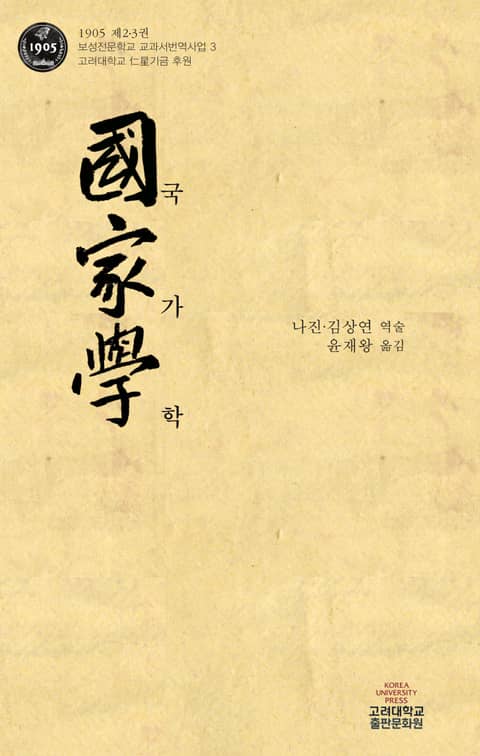 1905
1905 제2·3권
보성전문학교 교과서번역사업 3
고려대학교 仁星기금 후원
國家學
국가학
나진·김상연 역술
윤재왕 옮김
KOREA
UNIVERSITY
PRESS
고려대학교
출판문화원